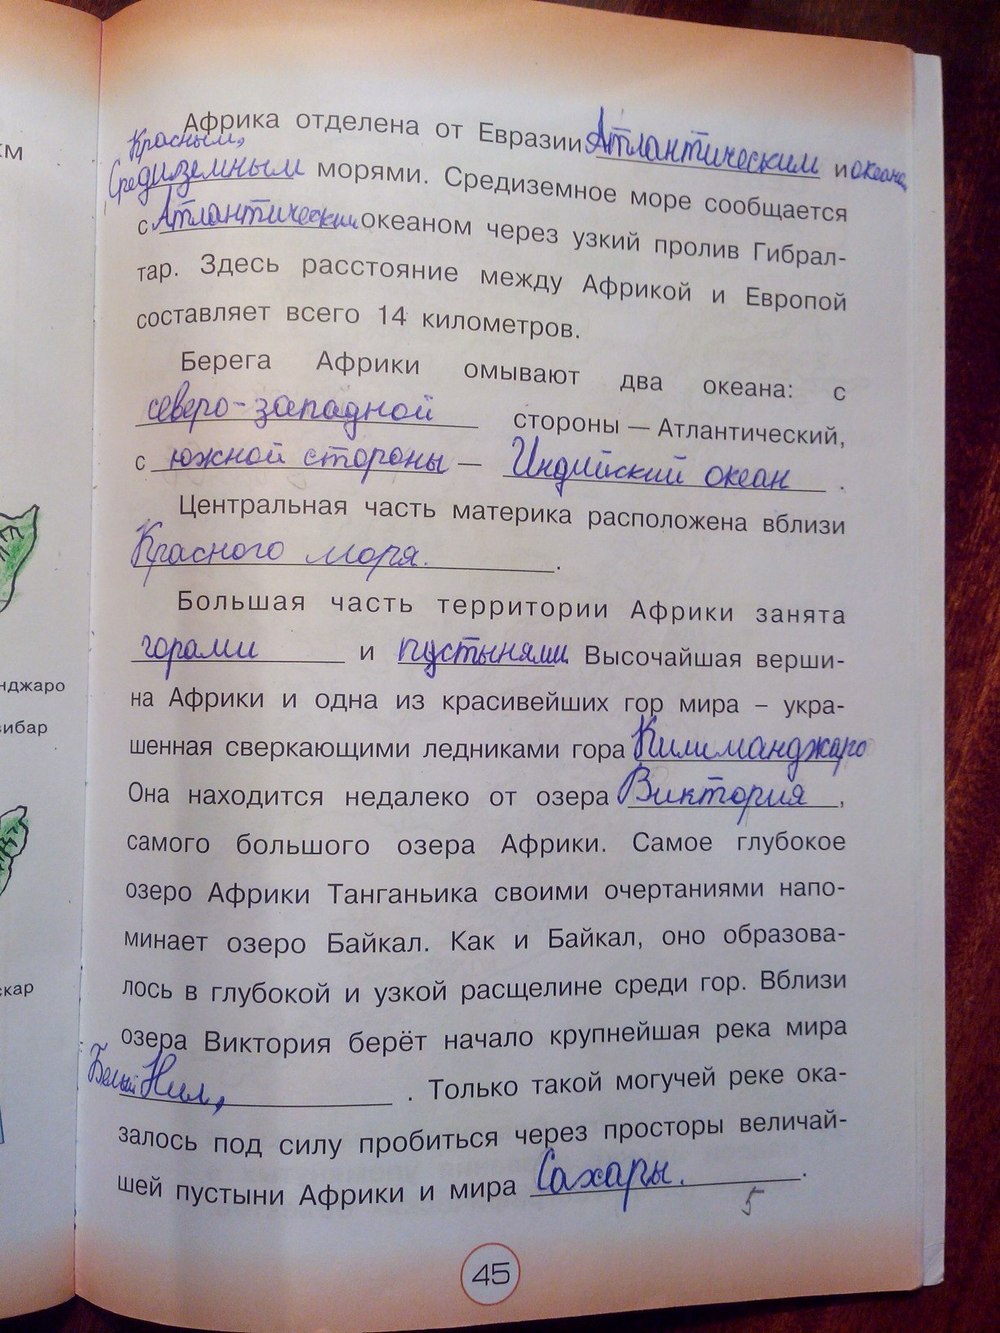 км
нджаро
ибар
скар
Африка отделена от Евразии Атлантическим и океаном
Красным,
Средиземным морями. Средиземное море сообщается
с Атлантическим океаном через узкий пролив Гибрал-
тар. Здесь расстояние между Африкой и Европой
составляет всего 14 километров.
Берега Африки омывают два океана: с
северо-западной стороны — Атлантический,
с южной стороны — Индийский океан .
Центральная часть материка расположена вблизи
Красного моря. .
Большая часть территории Африки занята
горами и пустынями. Высочайшая верши-
на Африки и одна из красивейших гор мира – укра-
шенная сверкающими ледниками гора Килиманджаро
Она находится недалеко от озера Виктория ,
самого большого озера Африки. Самое глубокое
озеро Африки Танганьика своими очертаниями напо-
минает озеро Байкал. Как и Байкал, оно образова-
лось в глубокой и узкой расщелине среди гор. Вблизи
озера Виктория берёт начало крупнейшая река мира
Белый Нил, . Только такой могучей реке ока-
залось под силу пробиться через просторы величай-
шей пустыни Африки и мира Сахары. .
5
45